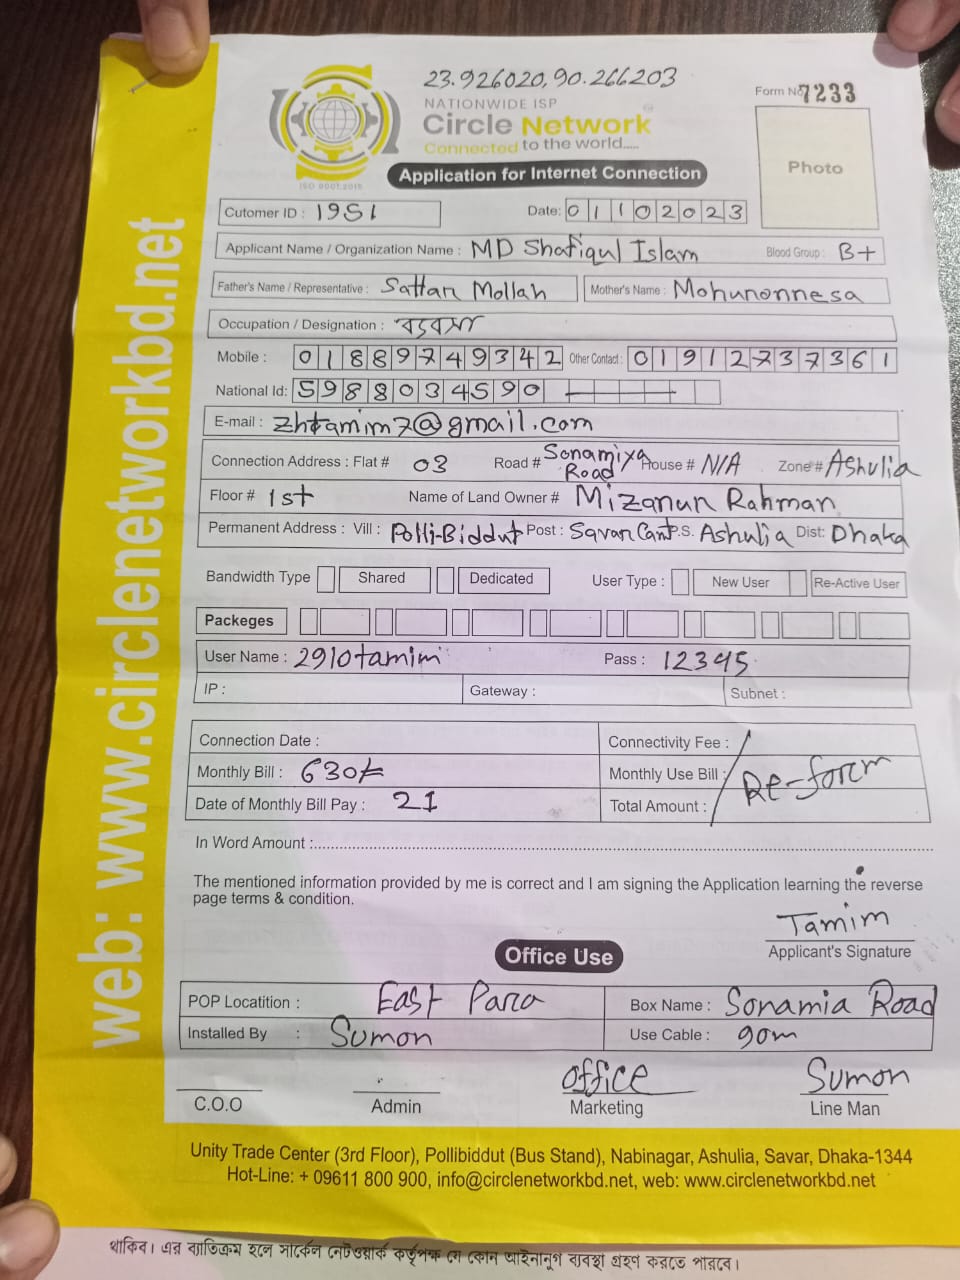 23.926020,90.266203
NATIONWIDE ISP
Circle Network
Connected to the world.....
ISO 9001:2015
Form No 7233
Photo
Application for Internet Connection
Cutomer ID : 1951 Date: 01102023
Applicant Name / Organization Name : MD Shafiqul Islam Blood Group : B+
Father's Name / Representative : Sattar Mollah Mother's Name : Mohunonnesa
Occupation / Designation :
Mobile : 01889749342 Other Contact : 01912737361
National Id: 5988034590
E-mail : zhtamim7@gmail.com
Connection Address : Flat # 03 Road # Sonamiya Road House # N/A Zone # Ashulia
Floor # 1st Name of Land Owner # Mizanur Rahman
Permanent Address : Vill : Polli-Biddut Post : Savar Cant P.S. Ashulia Dist: Dhaka
Bandwidth Type Shared Dedicated User Type : New User Re-Active User
Packeges
User Name : 2910tamim Pass : 12345
IP : Gateway : Subnet :
Connection Date : Connectivity Fee :
Monthly Bill : 630/= Monthly Use Bill :
Date of Monthly Bill Pay : 21 Total Amount :
Re-form
In Word Amount :
The mentioned information provided by me is correct and I am signing the Application learning the reverse
page terms & condition.
Tamim
Applicant's Signature
Office Use
POP Locatition : East Para Box Name : Sonamia Road
Installed By : Sumon Use Cable : 90m
Office Sumon
C.O.O Admin Marketing Line Man
Unity Trade Center (3rd Floor), Pollibiddut (Bus Stand), Nabinagar, Ashulia, Savar, Dhaka-1344
Hot-Line: + 09611 800 900, info@circlenetworkbd.net, web: www.circlenetworkbd.net
থাকিব। এর ব্যতিক্রম হলে সার্কেল নেটওয়ার্ক কর্তৃপক্ষ যে কোন আইনানুগ ব্যবস্থা গ্রহণ করতে পারবে।
web: www.circlenetworkbd.net